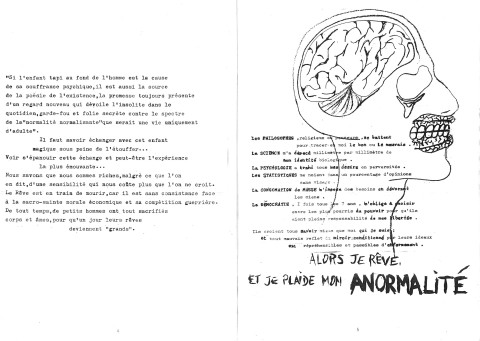 "Si l'enfant tapi au fond de l'homme est la cause
de sa souffrance psychique,il est aussi la source
de la poésie de l'existence,la promesse toujours présente
d'un regard nouveau qui dévoile l'insolite dans le
quotidien,garde-fou et folie secrète contre le spectre
de la"normalité normalisante"que serait une vie uniquement
d'adulte".
Il faut savoir échanger avec cet enfant
magique sous peine de l'étouffer...
Voir s'épanouir cette échange et peut-être l'expérience
la plus émouvante...
Nous savons que nous sommes riches,malgré ce que l'on
en dit,d'une sensibilité qui nous coûte plus que l'on ne croit.
Le Rêve est en train de mourir,car il est sans consistance face
à la sacro-sainte morale économique et sa compétition guerrière.
De tout temps,de petits hommes ont tout sacrifiés
corps et Ames,pour qu'un jour leurs rêves
deviennent "grands".
Les PHILOSOPHES ,religieux ou penseurs ,se battent
pour tracer en moi le bon ou le mauvais .
La SCIENCE m'a découpé millimètre par millimètre de
mon identité biologique .
La PSYCHOLOGIE a trahi tous mes désirs en perversités .
Les STATISTIQUES me notent dans un pourcentage d'opinions
sans vision .
La CONSOMMATION de MASSE m'impose des besoins en dévorant
les miens .
La DEMOCRATIE , 1 fois tous les 7 ans , m'oblige à choisir
entre les plus pourris de pouvoir pour qu'ils
aient pleine responsabilité de ma liberté .
Ils croient tous savoir mieux que moi qui je suis :
et tout mauvais reflet du miroir conditionné par leurs idéaux
est répréhensible et passible d'enfermement .
ALORS JE RÊVE.
ET JE PLAIDE MON ANORMALITÉ